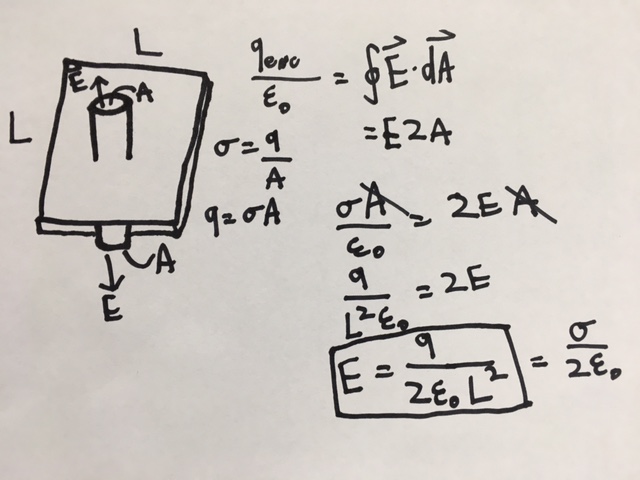 L
L
E
A
A
E
q enc / ε₀ = ∮ E⃗ · dA⃗
= E2A
σ = q / A
q = σA
σA / ε₀ = 2EA
q / L²ε₀ = 2E
E = q / 2ε₀L² = σ / 2ε₀